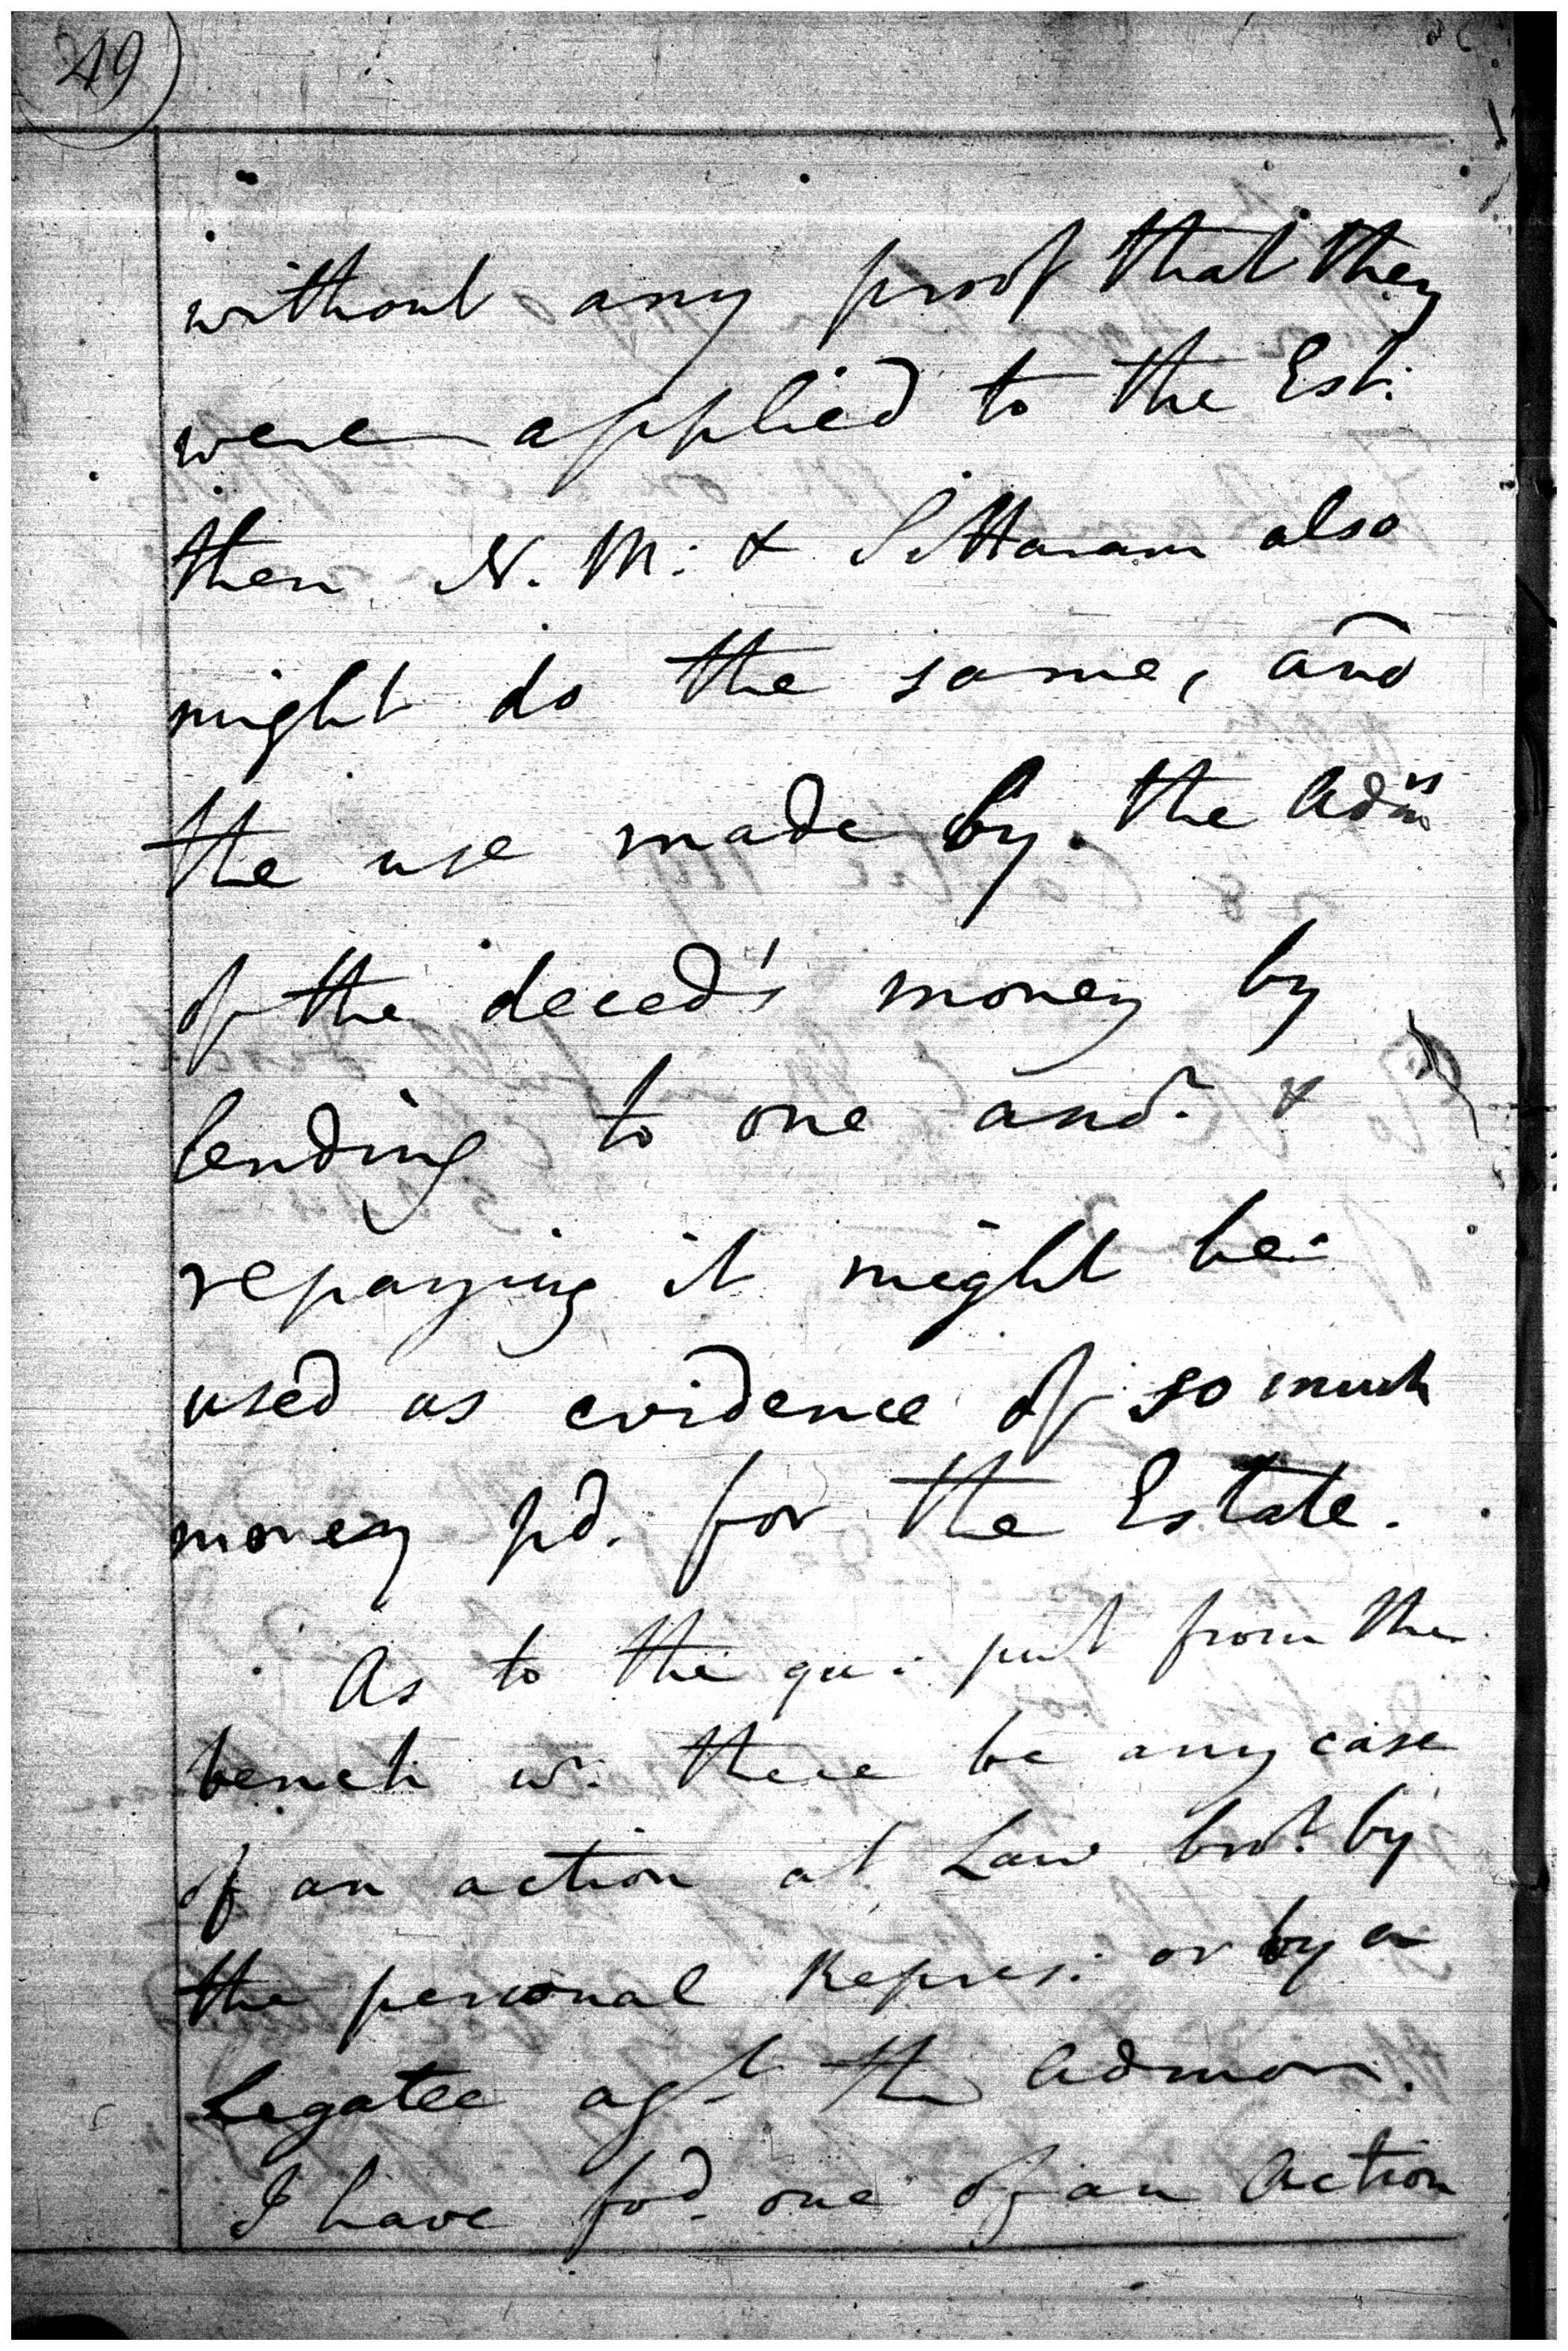 49
without any proof that they
were applied to the Est:
then N. M: & Sittaram also
might do the same, and
the use made by the Admrs
of the deced's money by
lending to one anor. &
repaying it might be
used as evidence of so much
money pd. for the Estate.
As to the qu: put from the
bench wr. there be any case
of an action at Law brot. by
the personal Repres: or by a
Legatee agt. the Admor.
I have fod. one of an Action